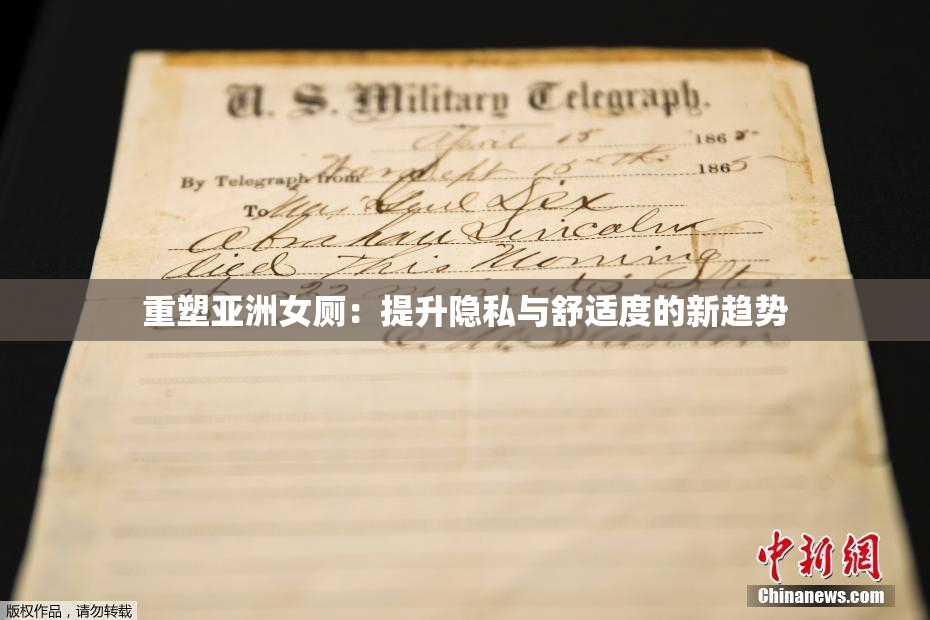 U. S. Military Telegraph.
April 15 1865
By Telegraph from War Dept 15th 1865
To Maj Genl Dix
Abraham Lincoln
died This Morning
22 minutes after
重塑亚洲女厕：提升隐私与舒适度的新趋势
E. M. Stanton
中新網
Chinanews.com
版权作品，请勿转载